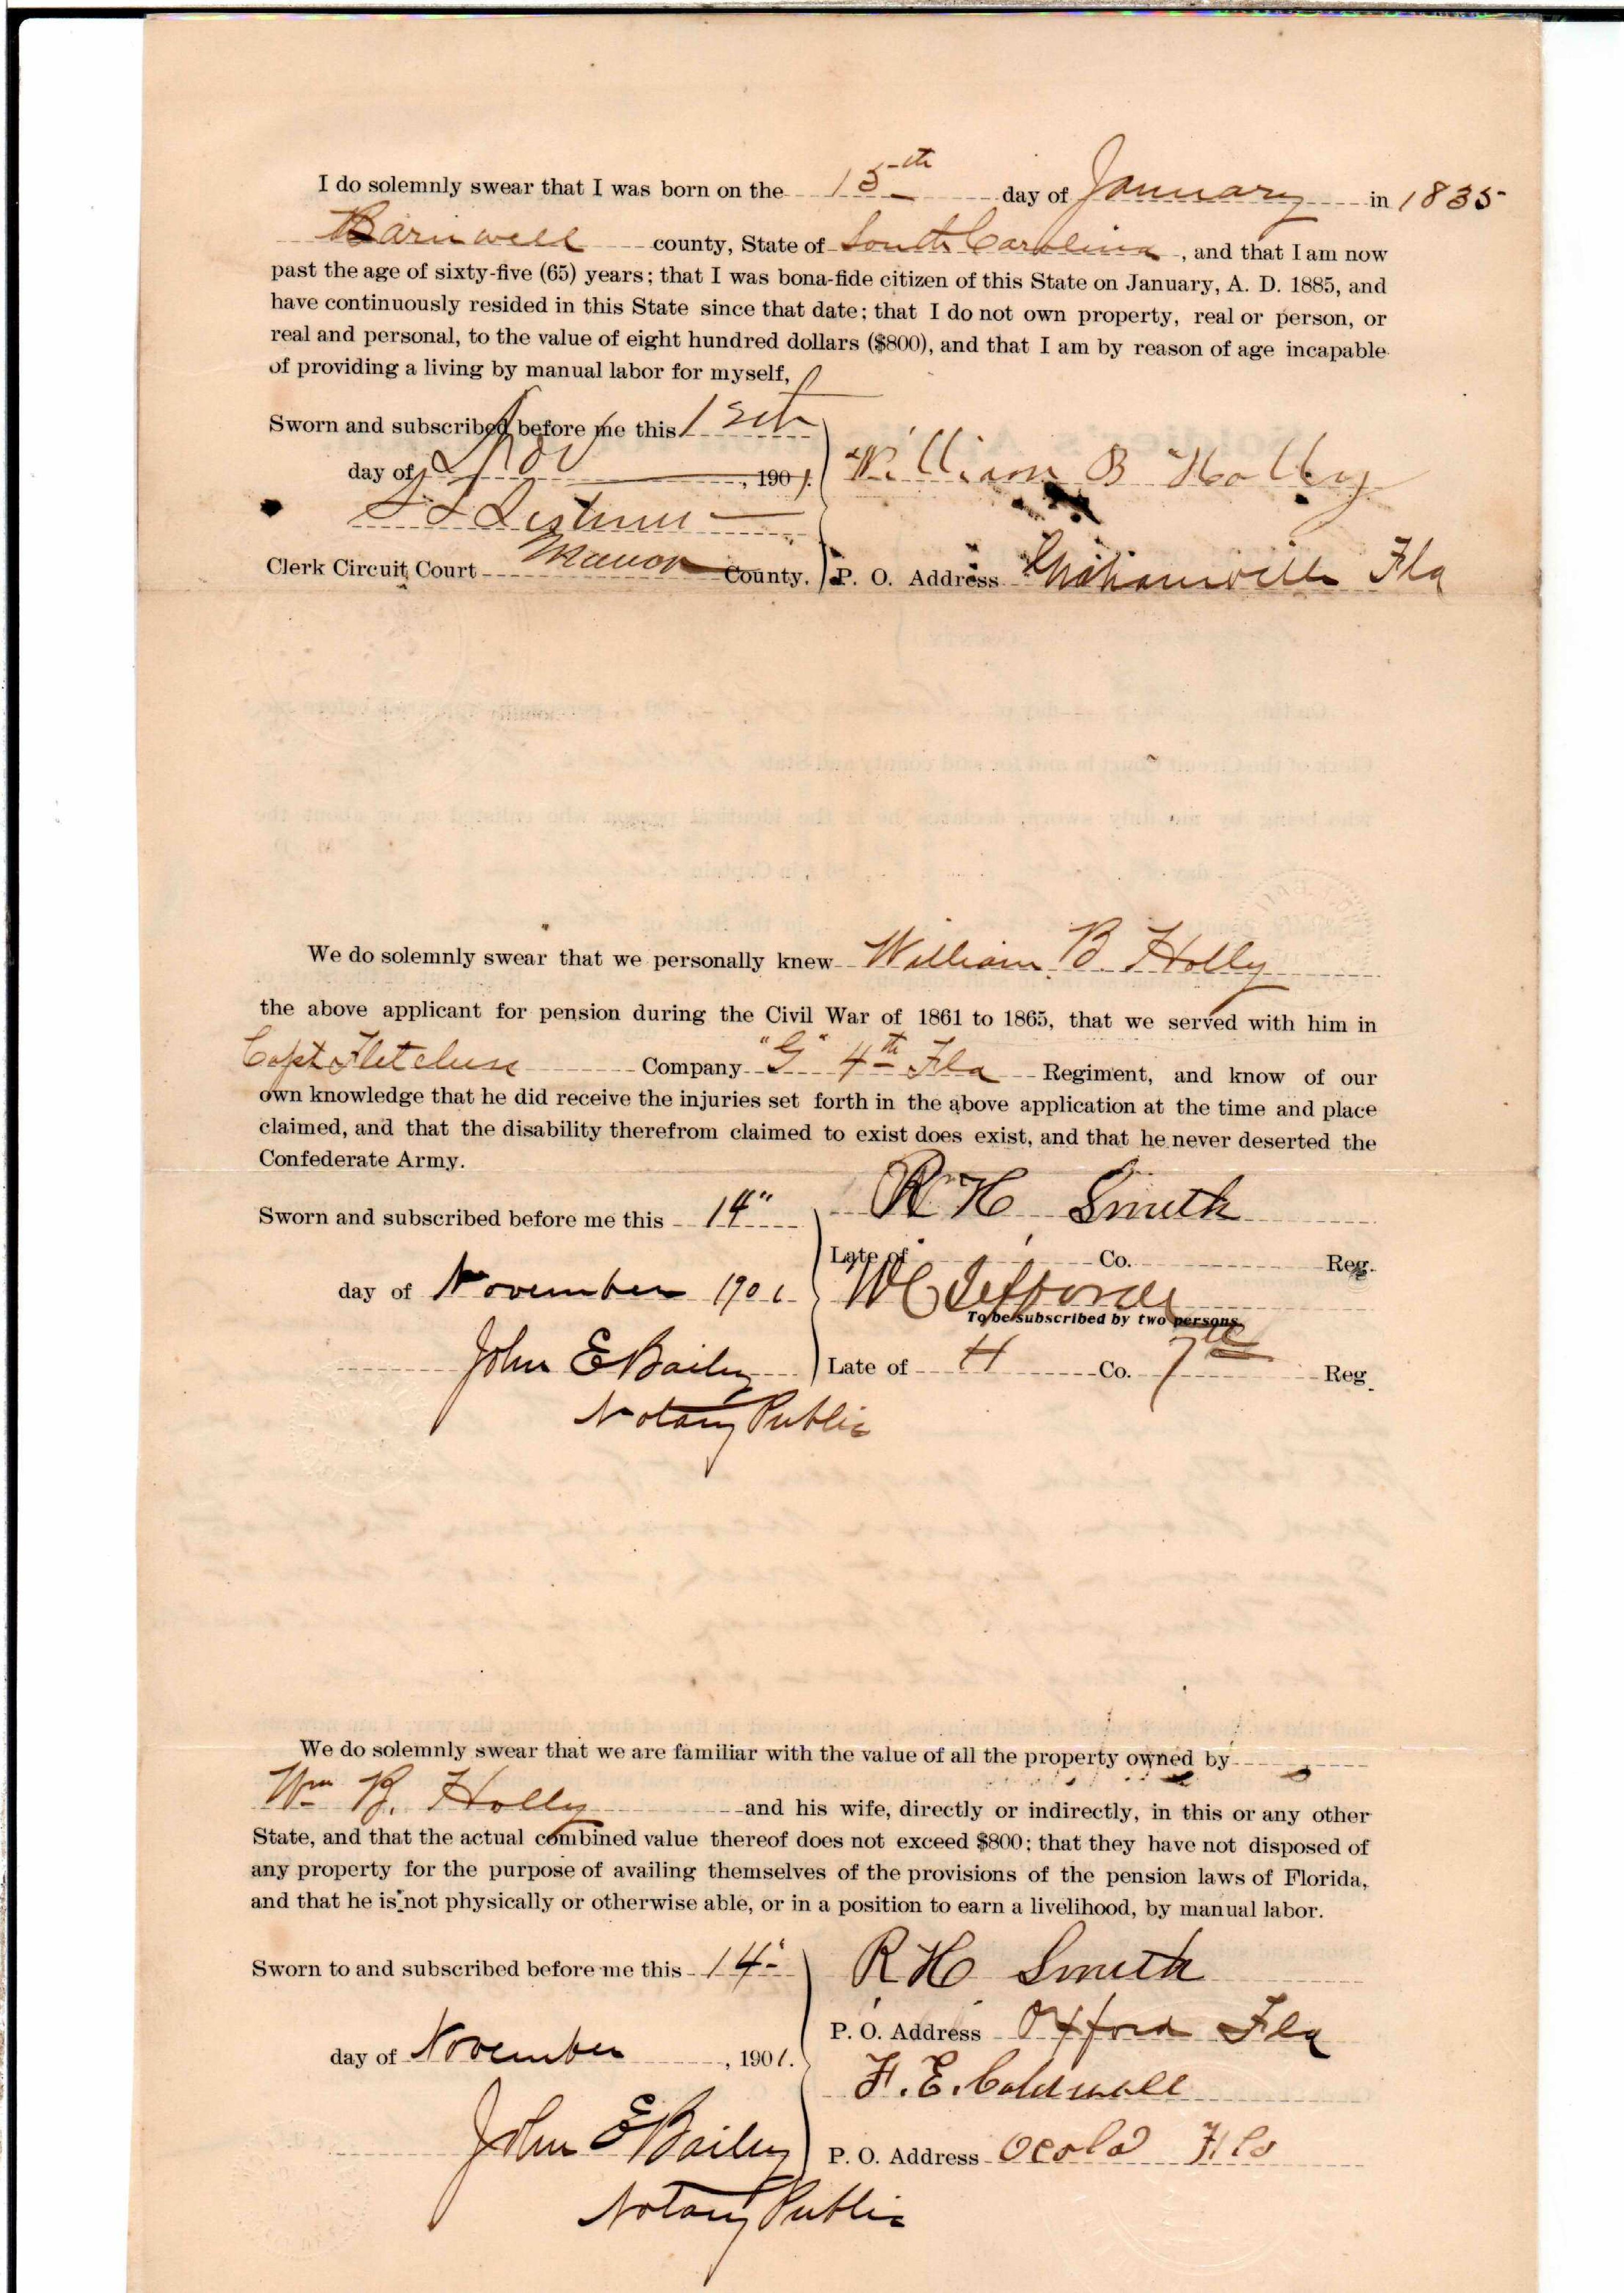 I do solemnly swear that I was born on the 15th day of January in 1835
Barnwell county, State of South Carolina, and that I am now
past the age of sixty-five (65) years; that I was bona-fide citizen of this State on January, A. D. 1885, and
have continuously resided in this State since that date; that I do not own property, real or person, or
real and personal, to the value of eight hundred dollars ($800), and that I am by reason of age incapable
of providing a living by manual labor for myself,
Sworn and subscribed before me this
day of Nov, 1901.
William B Holly
Clerk Circuit Court Marion County.
P. O. Address Fla
We do solemnly swear that we personally knew William B. Holly
the above applicant for pension during the Civil War of 1861 to 1865, that we served with him in
Capt Company "G" 4th Fla Regiment, and know of our
own knowledge that he did receive the injuries set forth in the above application at the time and place
claimed, and that the disability therefrom claimed to exist does exist, and that he never deserted the
Confederate Army.
Sworn and subscribed before me this 14"
R H Smith
Late of Co. Reg.
day of November 1901
W C Jeffords
To be subscribed by two persons.
John E Bailey
Late of H Co. 7th Reg.
Notary Public
We do solemnly swear that we are familiar with the value of all the property owned by
Wm B. Holly and his wife, directly or indirectly, in this or any other
State, and that the actual combined value thereof does not exceed $800; that they have not disposed of
any property for the purpose of availing themselves of the provisions of the pension laws of Florida,
and that he is not physically or otherwise able, or in a position to earn a livelihood, by manual labor.
Sworn to and subscribed before me this 14"
R H Smith
P. O. Address Oxford Fla
day of November, 1901.
F. E. Caldwell
John E Bailey
P. O. Address Ocala Fla
Notary Public